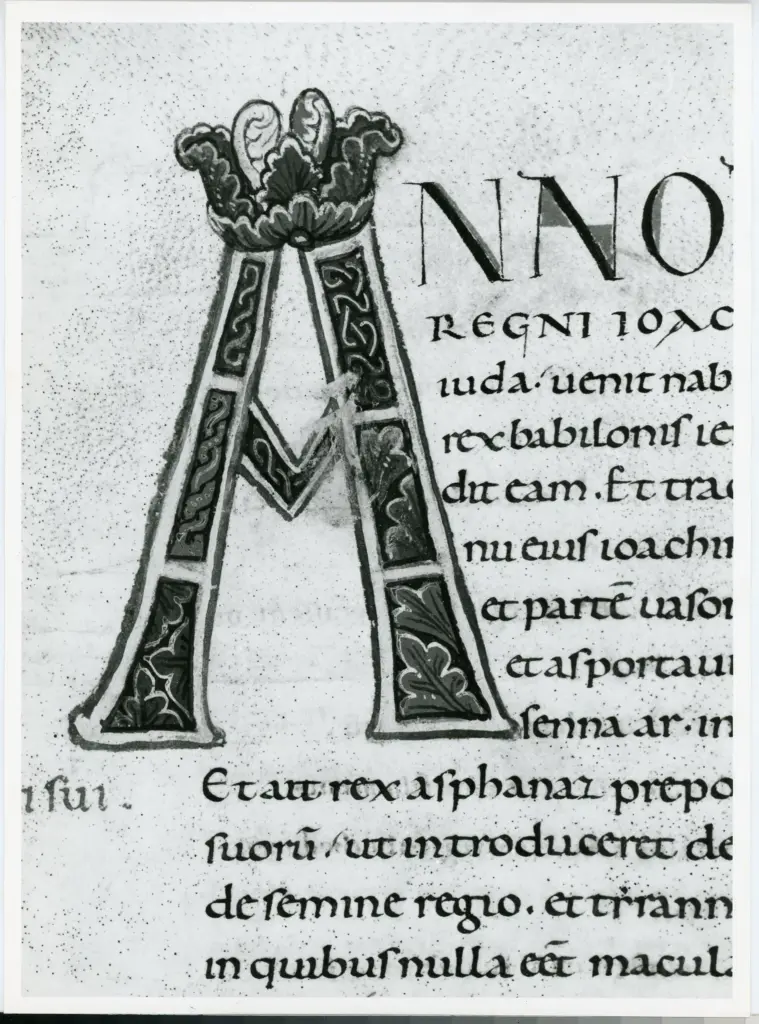 ANNO
REGNI IOAC
iuda. uenit nab
rex babilonis ie
dit eam. Et trad
nu eius ioachim
et partē uasor
et asportauit
senna ar. in
i sui.
Et ait rex asphanaz prepo
suorū. ut introduceret de
de semine regio. et tyrann
in quibus nulla eēt macula